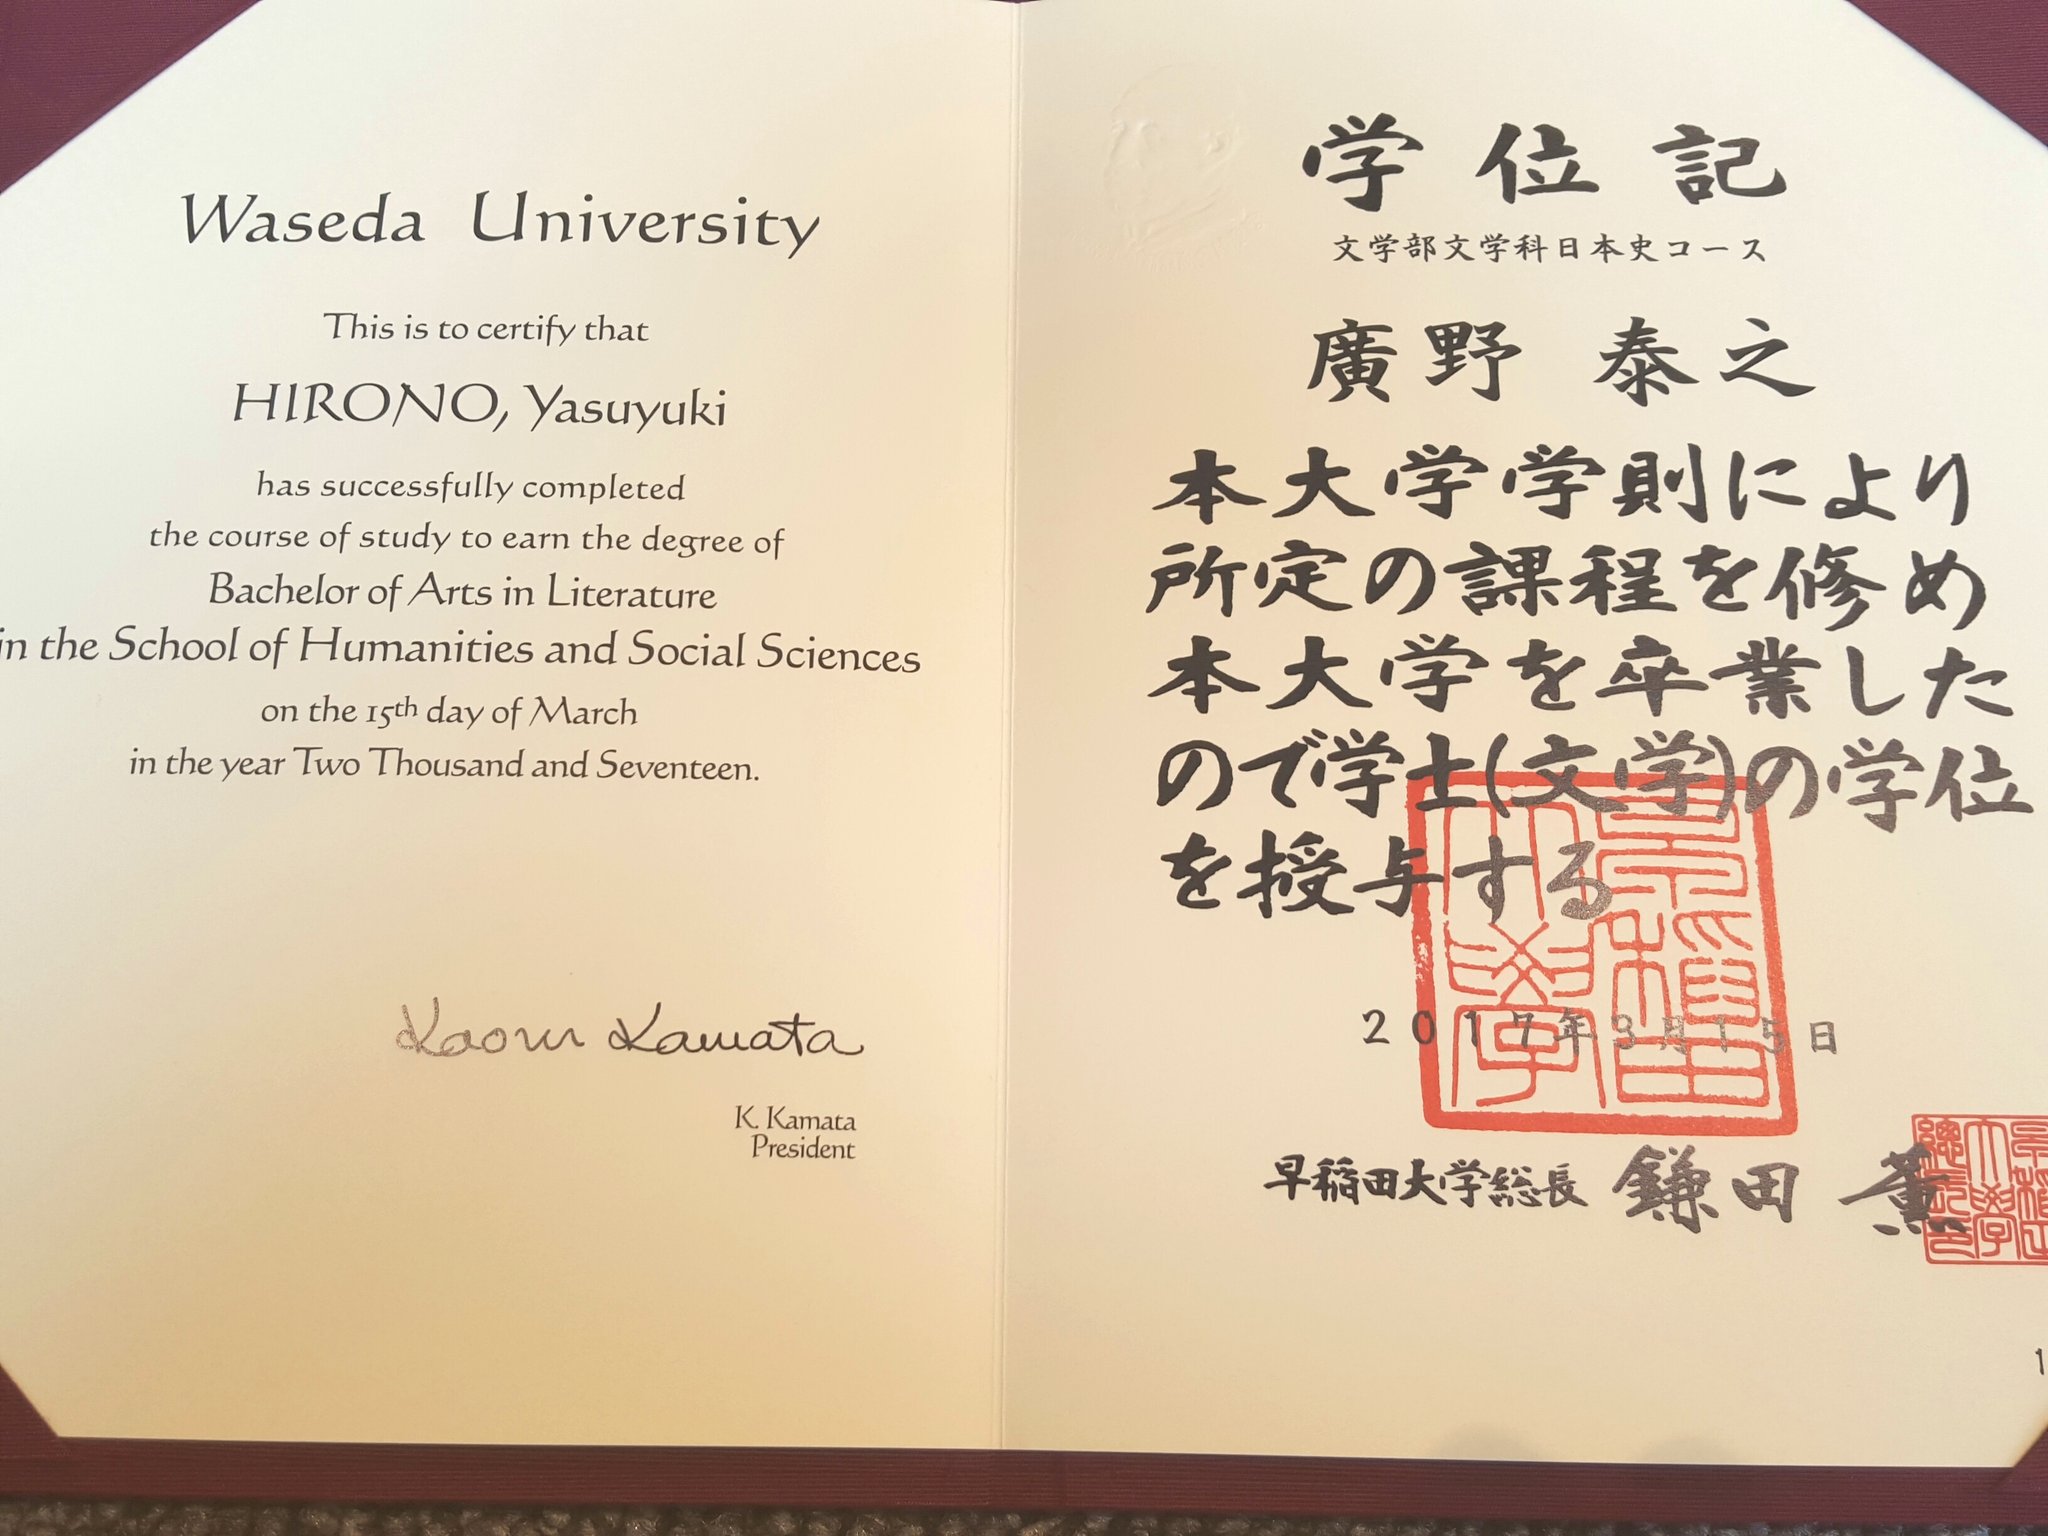 Waseda University
This is to certify that
HIRONO, Yasuyuki
has successfully completed
the course of study to earn the degree of
Bachelor of Arts in Literature
in the School of Humanities and Social Sciences
on the 15th day of March
in the year Two Thousand and Seventeen.
Kaoru Kamata
K. Kamata
President
学位記
文学部文学科日本史コース
廣野 泰之
本大学学則により
所定の課程を修め
本大学を卒業した
ので学士(文学)の学位
を授与する
2017年3月15日
早稲田大学総長 鎌田 薫
早稲田
大學